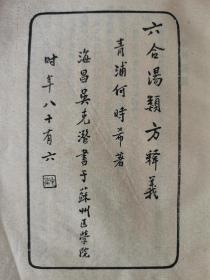 六合湯類方釋義
青浦何時希著
海昌吳克潛書于蘇州醫學院
时年八十有六